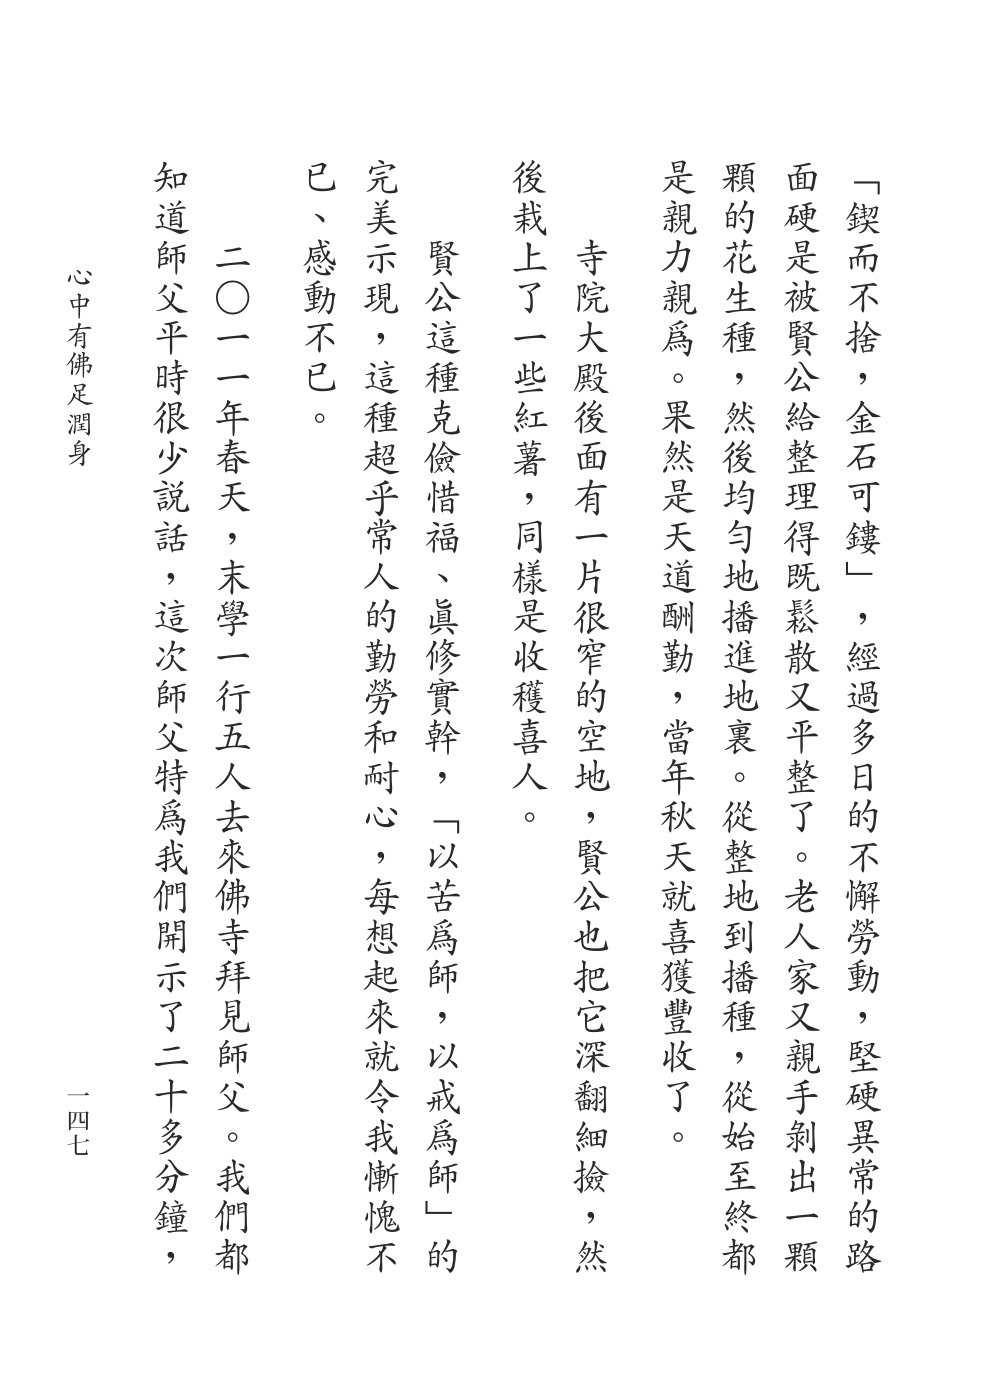 「鍥而不捨，金石可鏤」，經過多日的不懈勞動，堅硬異常的路
面硬是被賢公給整理得既鬆散又平整了。老人家又親手剝出一顆
顆的花生種，然後均勻地播進地裏。從整地到播種，從始至終都
是親力親爲。果然是天道酬勤，當年秋天就喜獲豐收了。
寺院大殿後面有一片很窄的空地，賢公也把它深翻細撿，然
後栽上了一些紅薯，同樣是收穫喜人。
賢公這種克儉惜福、眞修實幹，「以苦爲師，以戒爲師」的
完美示現，這種超乎常人的勤勞和耐心，每想起來就令我慚愧不
已、感動不已。
二〇一一年春天，末學一行五人去來佛寺拜見師父。我們都
知道師父平時很少説話，這次師父特爲我們開示了二十多分鐘，
心中有佛足潤身
一四七